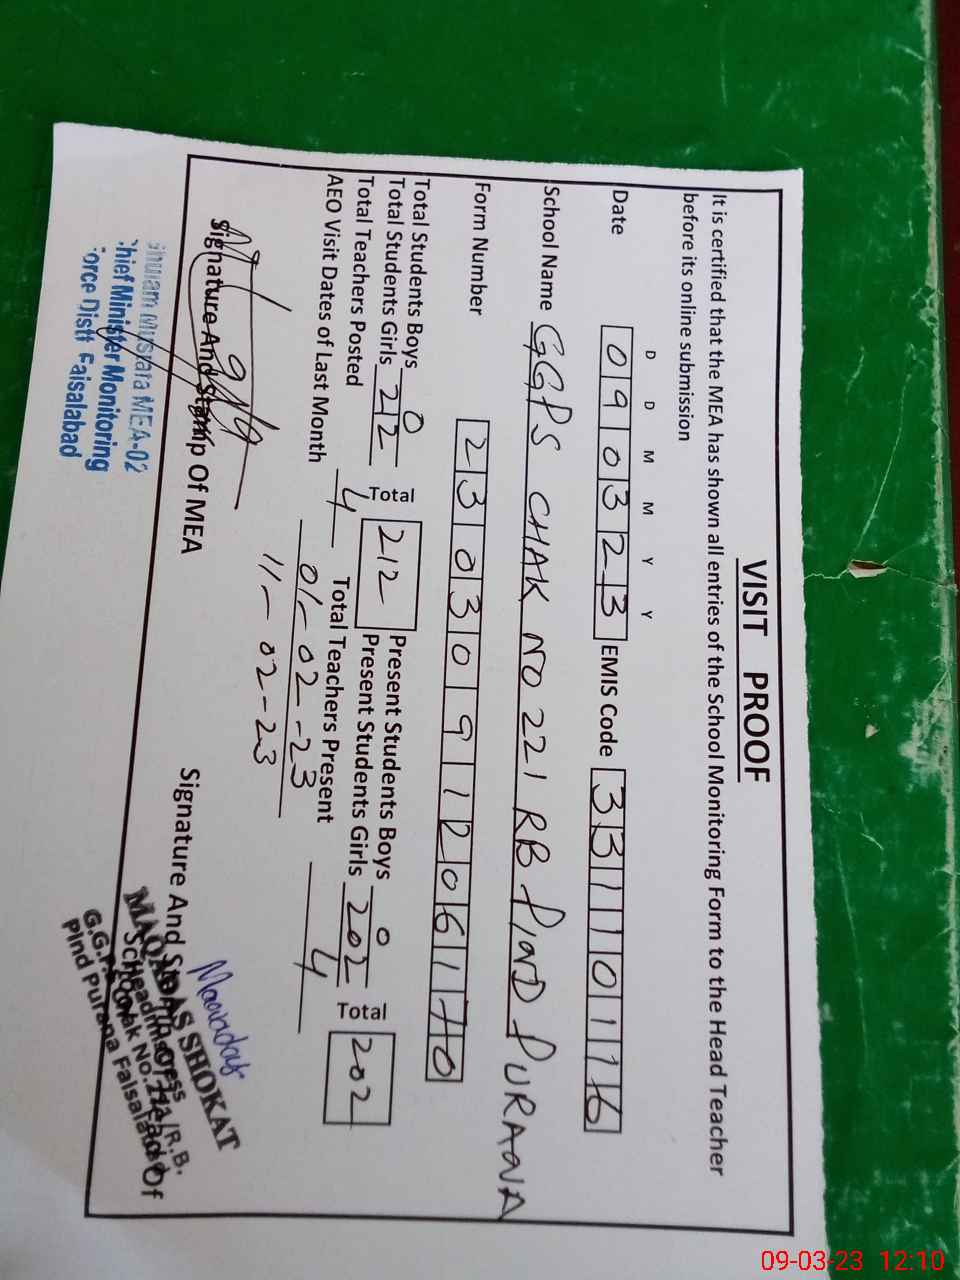 VISIT PROOF
It is certified that the MEA has shown all entries of the School Monitoring Form to the Head Teacher
before its online submission
D D M M Y Y
Date 090323 EMIS Code 33110116
School Name GGPS CHAK NO 221 RB PIND PURANA
Form Number 23030912061170
Total Students Boys 0 Present Students Boys 0
Total Students Girls 212 Total 212 Present Students Girls 202 Total 202
Total Teachers Posted 4 Total Teachers Present 4
AEO Visit Dates of Last Month 01-02-23
11-02-23
Signature And Stamp Of MEA
Signature And Stamp Of Head Of
MEA-02
Chief Minister Monitoring
Force Distt Faisalabad
SHOKAT
Headmistress
G.G.P.S Chak No. 221/R.B.
Pind Purana Faisalabad
09-03-23 12:10